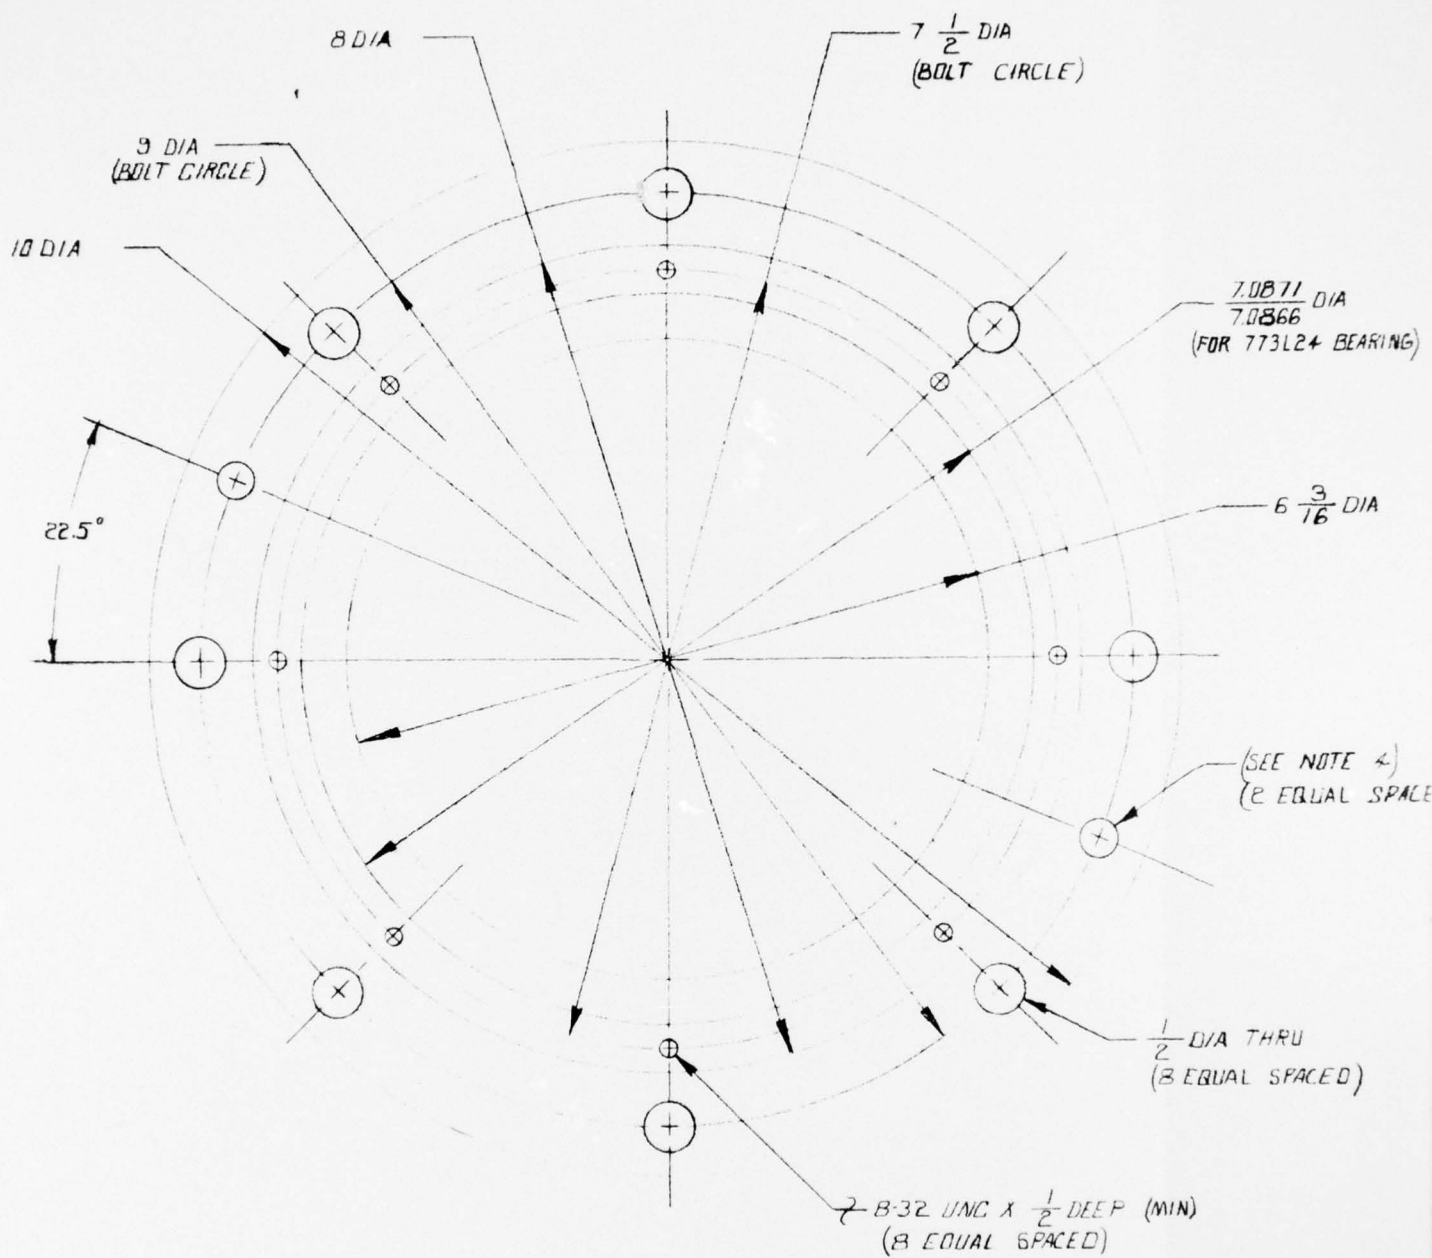 8 DIA
7 1/2 DIA
(BOLT CIRCLE)
9 DIA
(BOLT CIRCLE)
10 DIA
7.0871
7.0866 DIA
(FOR 773L24 BEARING)
6 3/16 DIA
22.5°
(SEE NOTE 4)
(2 EQUAL SPACE
1/2 DIA THRU
(8 EQUAL SPACED)
8-32 UNC X 1/2 DEEP (MIN)
(8 EQUAL SPACED)